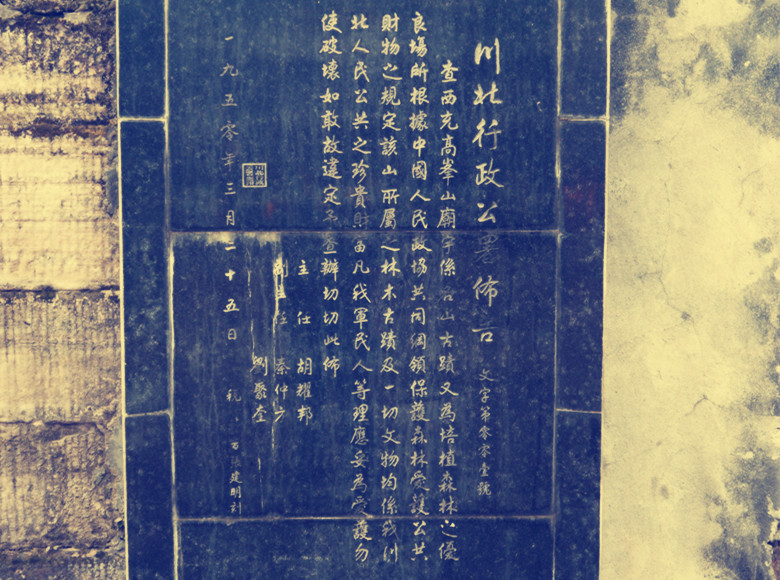 川北行政公署佈告
文字第零零壹號
查西充高峯山廟宇係名山古蹟又為培植森林之優
良場所根據中國人民政協共同綱領保護森林愛護公共
財物之規定該山所屬之林木古蹟及一切文物均係我川
北人民公共之珍貴財富凡我軍民人等理應妥為愛護勿
使破壞如敢故違定予查辦切切此佈
主任 胡耀邦
副主任 秦仲方
劉聚奎
一九五零年三月二十五日
建明刻